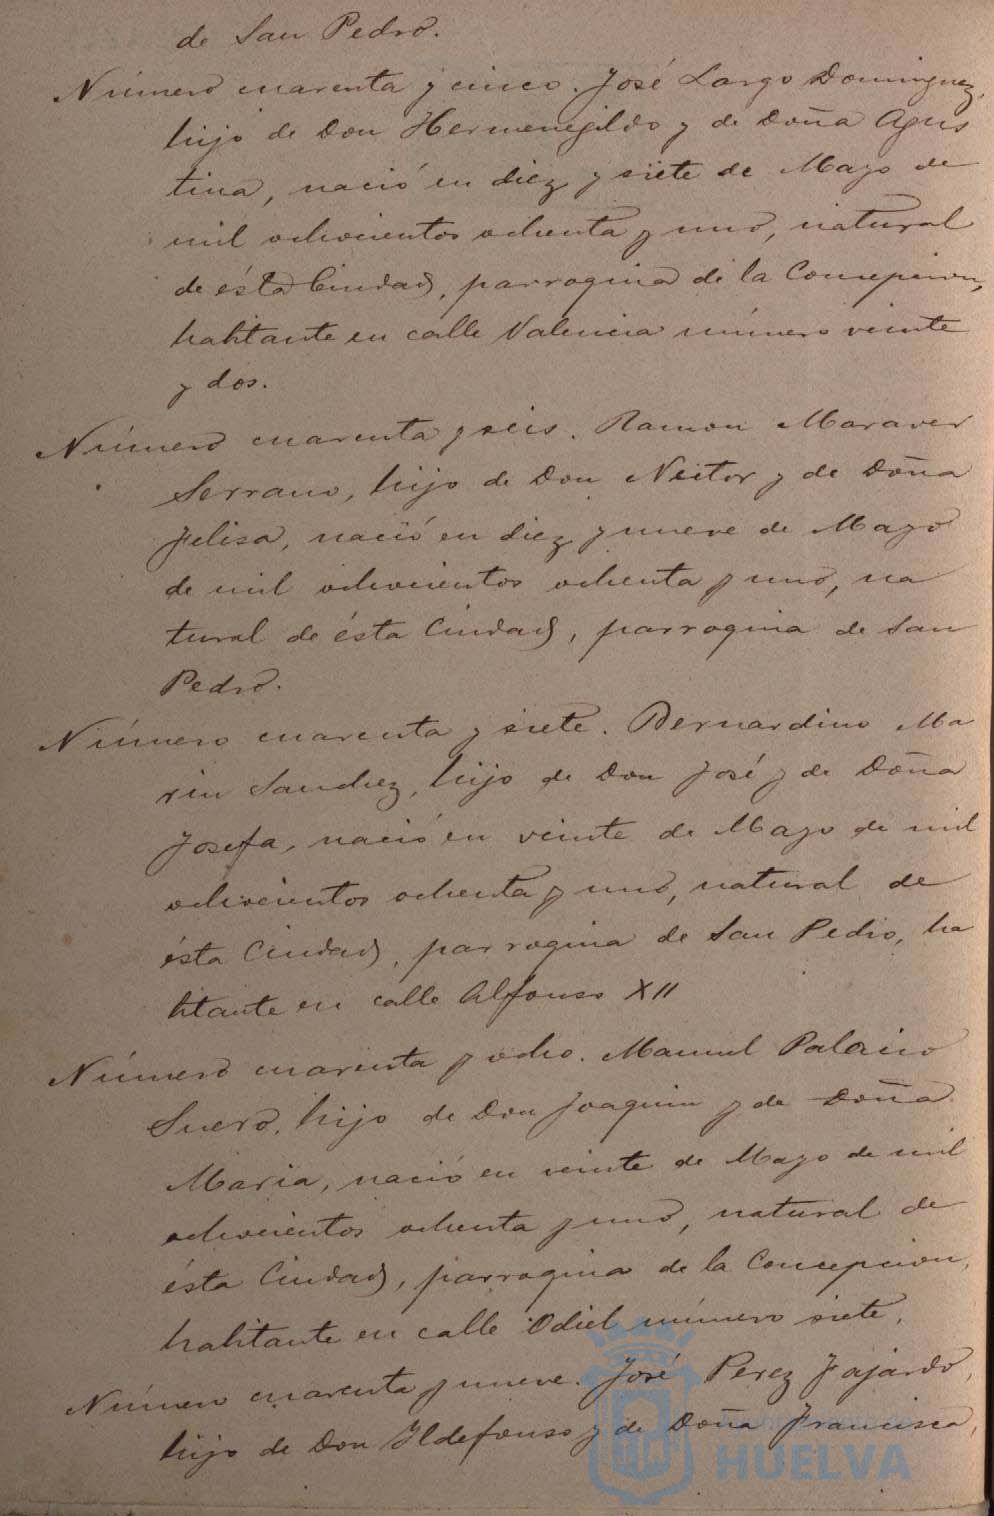 de San Pedro.
Número cuarenta y cinco. José Largo Dominguez,
hijo de Don Hermenegildo y de Doña Agus
tina, nació en diez y siete de Mayo de
mil ochocientos ochenta y uno, natural
de ésta Ciudad, parroquia de la Concepcion,
habitante en calle Valencia número veinte
y dos.
Número cuarenta y seis. Ramon Maraver
Serrano, hijo de Don Nestor y de Doña
Felisa, nació en diez y nueve de Mayo
de mil ochocientos ochenta y uno, na
tural de ésta Ciudad, parroquia de San
Pedro.
Número cuarenta y siete. Bernardino Ma
rin Sanchez, hijo de Don José y de Doña
Josefa, nació en veinte de Mayo de mil
ochocientos ochenta y uno, natural de
ésta Ciudad, parroquia de San Pedro, ha
bitante en calle Alfonso XII
Número cuarenta y ocho. Manuel Palacio
Suero, hijo de Don Joaquin y de Doña
Maria, nació en veinte de Mayo de mil
ochocientos ochenta y uno, natural de
ésta Ciudad, parroquia de la Concepcion,
habitante en calle Odiel número siete.
Número cuarenta y nueve. José Perez Fajardo,
hijo de Don Ildefonso y de Doña Francisca,
HUELVA